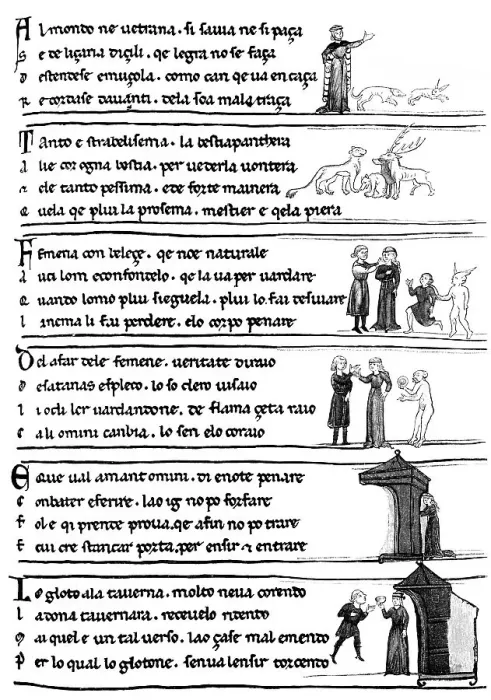 Al mondo ne vetrana. si savia ne si paça
Se de liçana diçili. qe legra no se faça
Destendese emuçola. como can qe va en caça
Recordase davanti. dela soa mala traça
Tanto e stradelisema. la bestia panthera
Alie cor ogna bestia. per vederla vontera
ele tanto pessima. e de forte mainera
Quela qe plui la prosema. mestier e qela piera
Femena con beleçe. qe no e naturale
Auci lom e confondelo. qe la va per vardare
Quando lomo plui sieguela. plui lo fai desviare
lanema li fai perdere. elo corpo penare
Del afar dele femene. veritate diraio
De satanas espleco. lo so clero visaio
li ocli ler vardandone. de flama çeta raio
E ali omini canbia. lo sen elo coraio
E Que val amant omini. di e note penare
Conbater e ferire. lao ig no po forfare
fol e qi prende prova. qe afin no po trare
E cui cre stancar porta. per ensir & entrare
Lo gloto ala taverna. molto neva corendo
la dona tavernara. recevelo ridento
quel e un tal verso. lao çase mal emento
Per lo qual lo glotone. senva lensir torcento